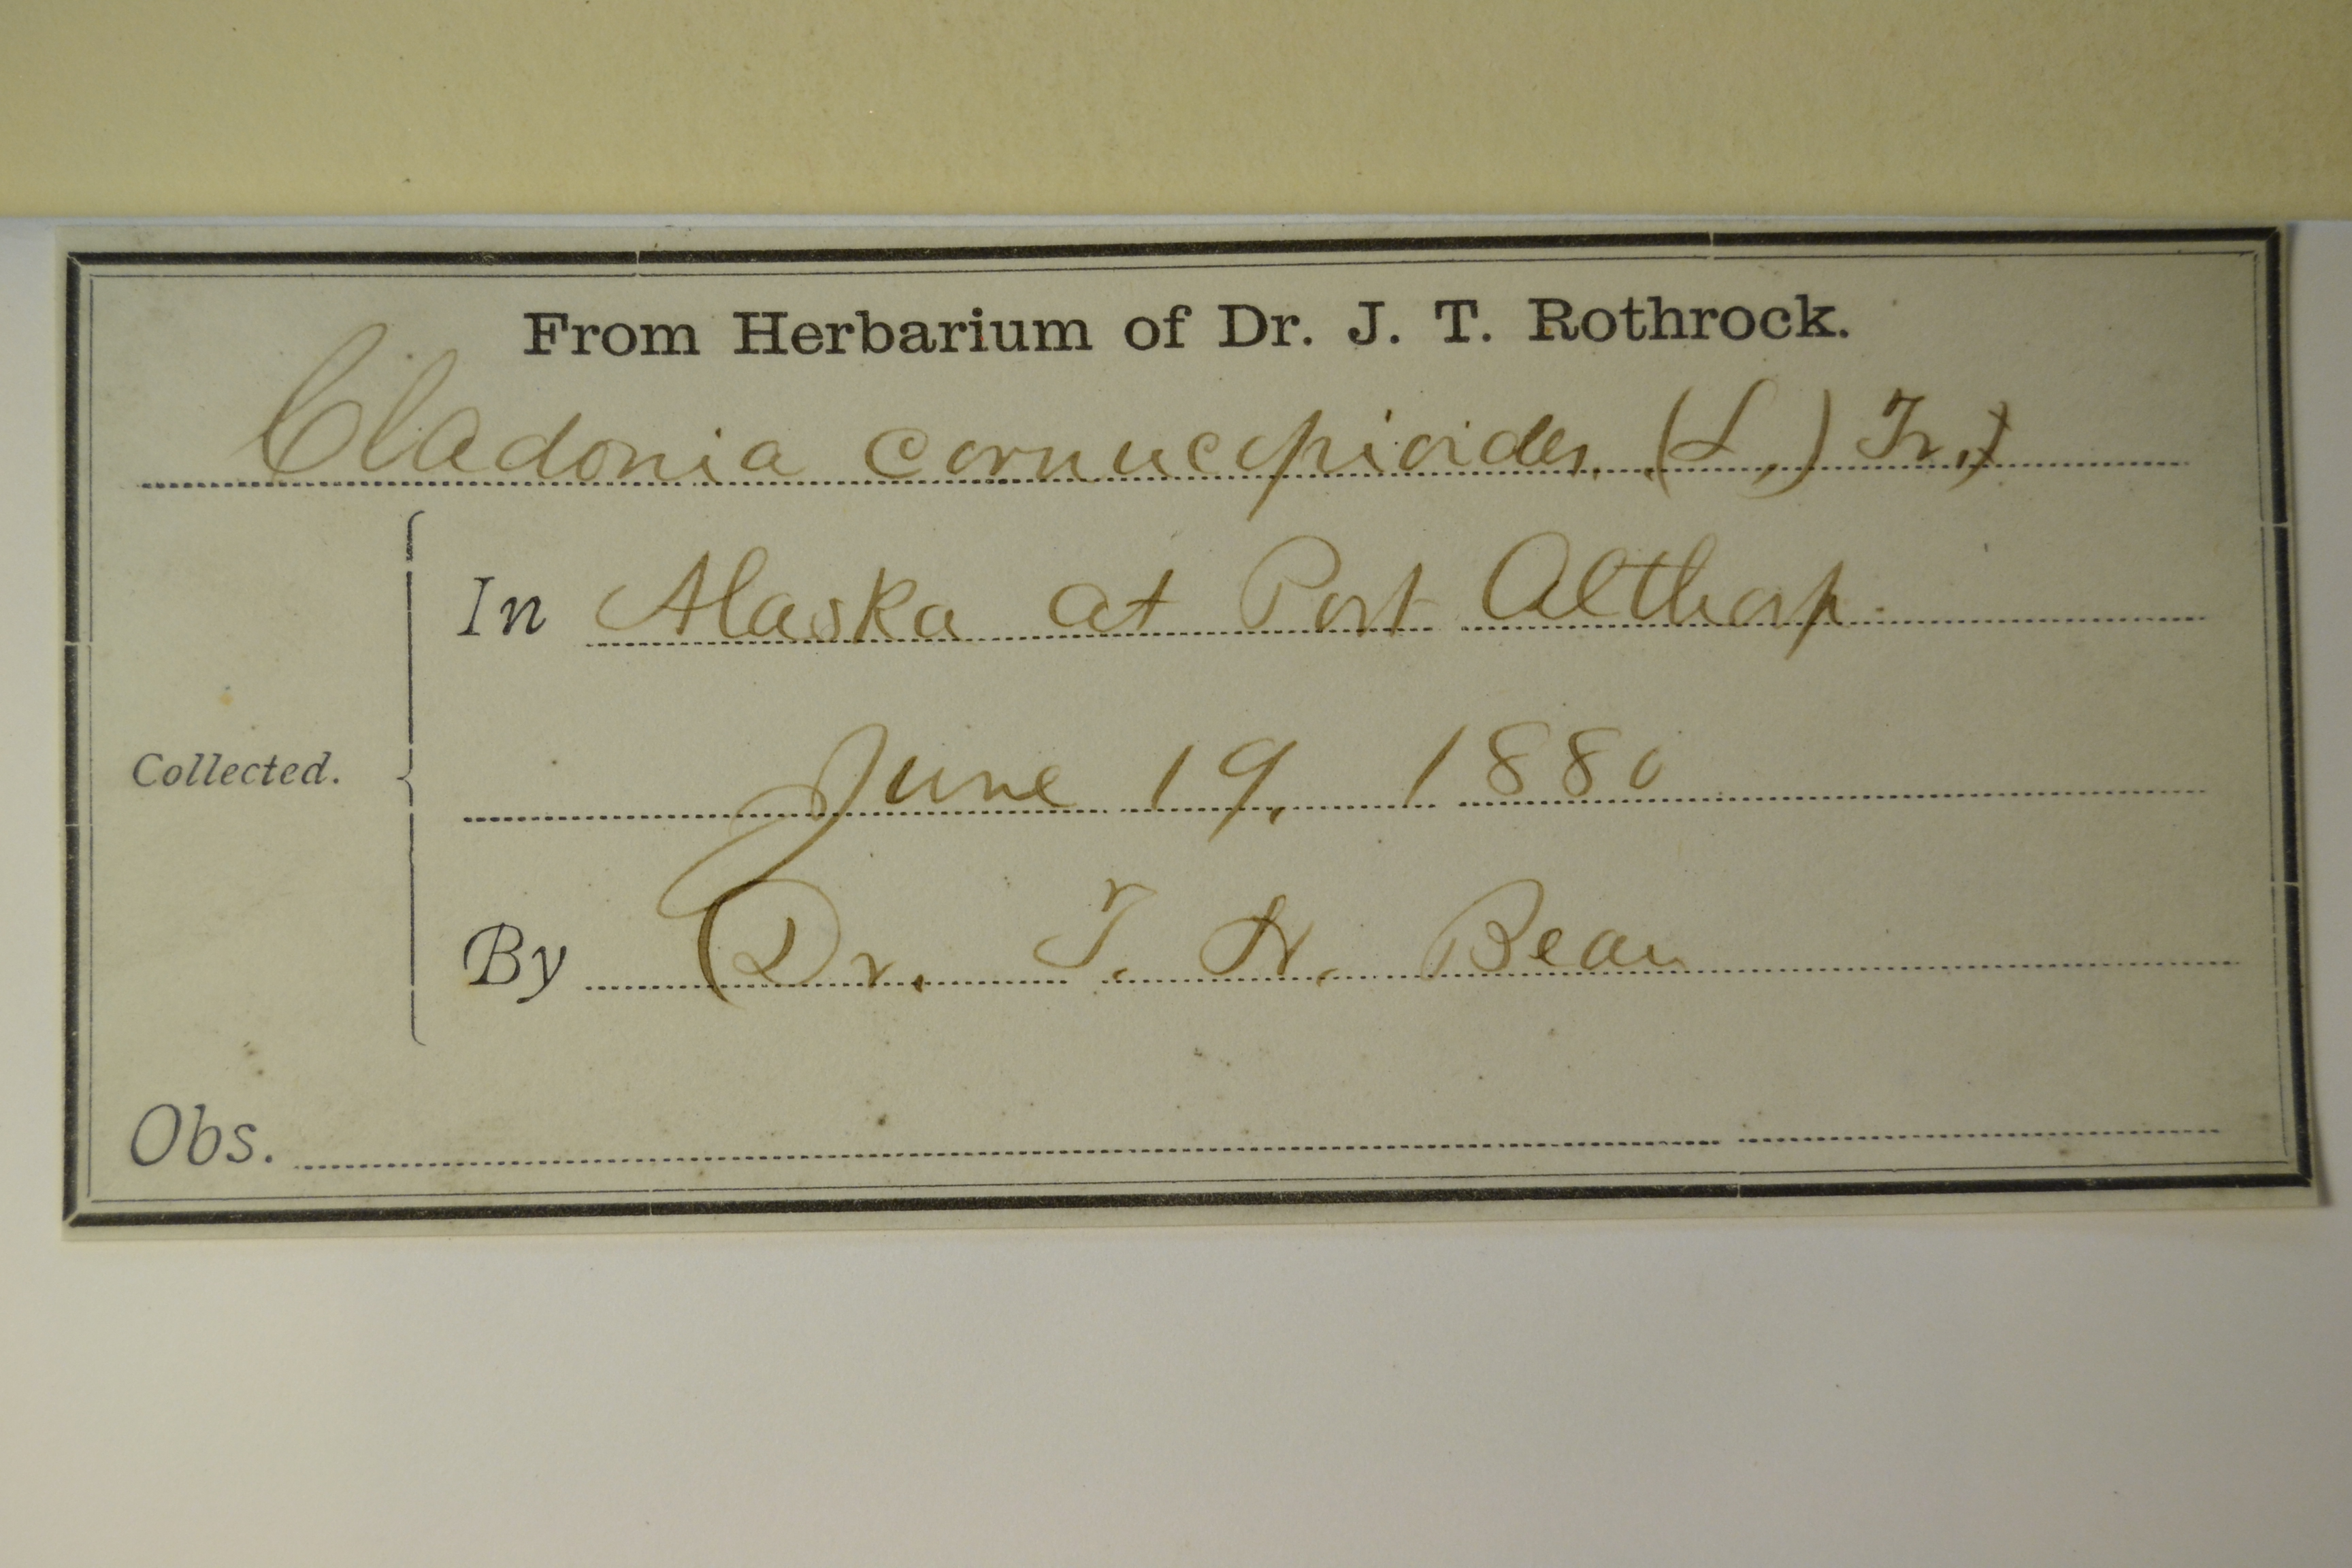 From Herbarium of Dr. J. T. Rothrock.
Cladonia cornucopioides (L.) Fr.
In Alaska at Port Althorp.
Collected. June 19, 1880
By Dr. T. H. Bean
Obs.